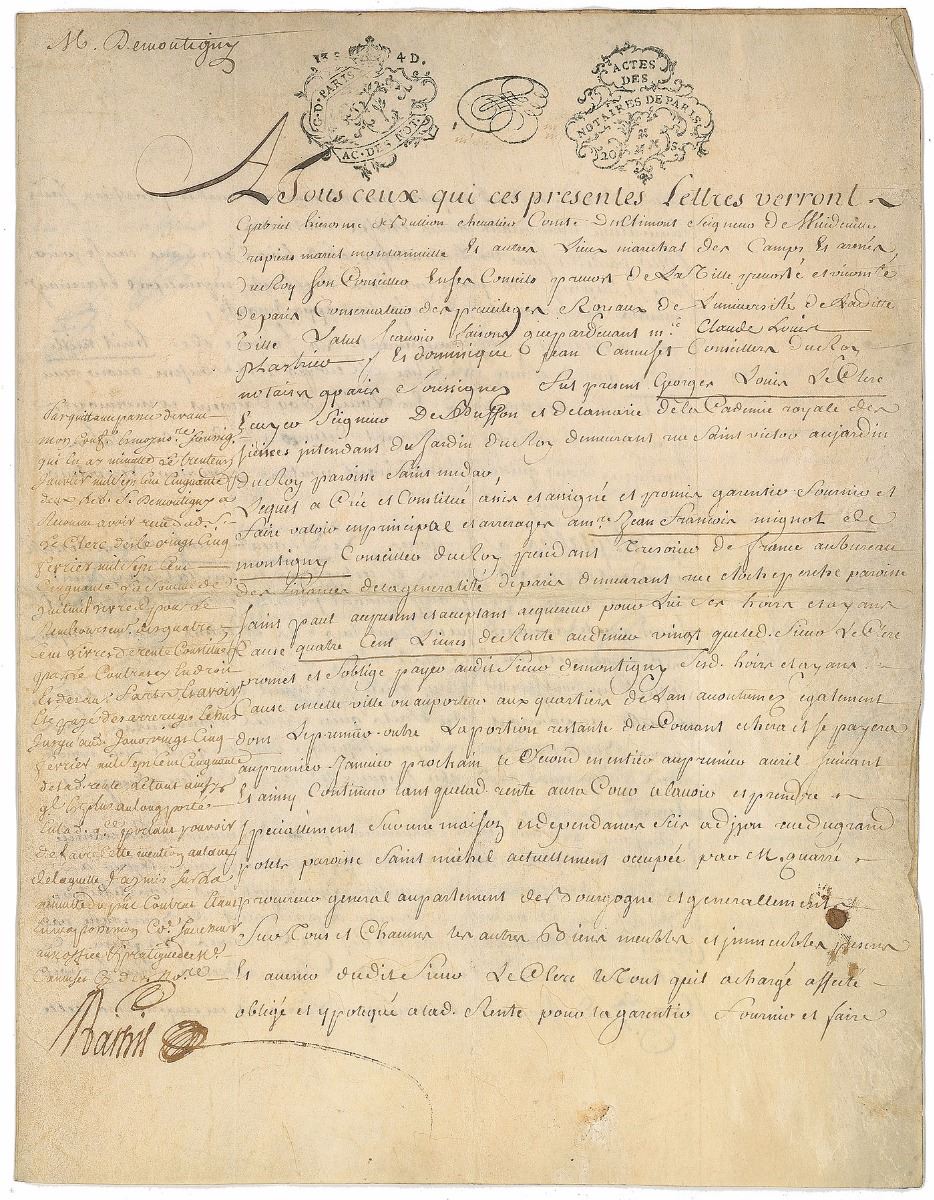 M. Demontigny
4 D.
G. D. PARIS
AC. DES NOT.
ACTES
DES
NOTAIRES DE PARIS
20 S.
A Tous ceux qui ces presentes Lettres verront
Gabriel hierosme de Bullion chevalier Comte Desclimont Seigneur de
marchal des Camps Et armées
du Roy Son Conseiller En ses Conseils prevost de La Ville prevosté et vicomté
de paris Conservateur des privileges Royaux de L'université de Laditte
Ville Salut scavoir faisons que pardevant me. Claude Louis
Et dominique Jean Camuset Conseillers du Roy
notaires a paris Soussignés fut present Georges Louis Le Clerc
Ecuyer Seigneur De Buffon et de la marie de la Cademie royale des
siences intendant du Jardin du Roy demeurant rue Saint victor au jardin
du Roy paroisse Saint medar,
Lequel a Créé et Constitué assis et assigné et promis garentir Fournir et
faire valoir en principal et arrerages a mre. Jean François mignot de
montigny Conseiller du Roy president Tresorier de france au bureau
des finances de la generalité de paris demeurant rue cloche perche paroisse
saint paul a ce present et acceptant acquereur pour Lui ses hoirs et ayans
Cause quatre Cent Livres de Rente au denier vingt que led. Sieur Le Clerc
promet et s'oblige payer audit Sieur demontigny Sesd. hoirs et ayans
Cause en cette ville ou au porteur aux quartiers de L'an acoutumés egalement
dont Le premier outre La portion restante du Courant echera et se payera
au premier Janvier prochain le Second en entier au premier avril suivant
Et ainsy Continuer tant que lad. rente aura Cour a lavoir et prendre
specialement sur une maison et dependances scis a dijon rue du grand
potets paroisse Saint michel actuellement occupée par M. quarré
procureur general au parlement de Bourgogne et generallement
Sur Tous et Chacuns les autres Biens meubles et immeubles presens
Et avenir dudit Sieur Le Clerc Le Tout quil a chargé affecté
obligé et ypotequé a lad. Rente pour la garentir Fournir et faire
Par quittance passée devant
mon Confr.
qui En a minute Le trente un
Janvier mil sept Cent Cinquante
deux led. Sr. Demontigny a
Reconnu avoir receu dud. Sr.
Le Clerc des le vingt Cinq
fevrier mil sept Cent
Cinquante La Somme de
huit mil livres pour le
Remboursement des quatre
Cent livres de rente Constituée
par le Contrat
Et de sa part Et avoir
Eté payé des arrerages Echus
Jusqu'aud. Jour vingt Cinq
fevrier mil Sept Cent Cinquante
de lad. rente Le tout ainsy
qu'il Est plus au long porté
En lad. qce. portant pouvoir
de faire Cette mention autant
de laquelle J'ay mis sur La
minutte du pnt Contrat Etant
En ma possession Ce. Successeur
aux office Et pratique de Me
Camuset
Bathis